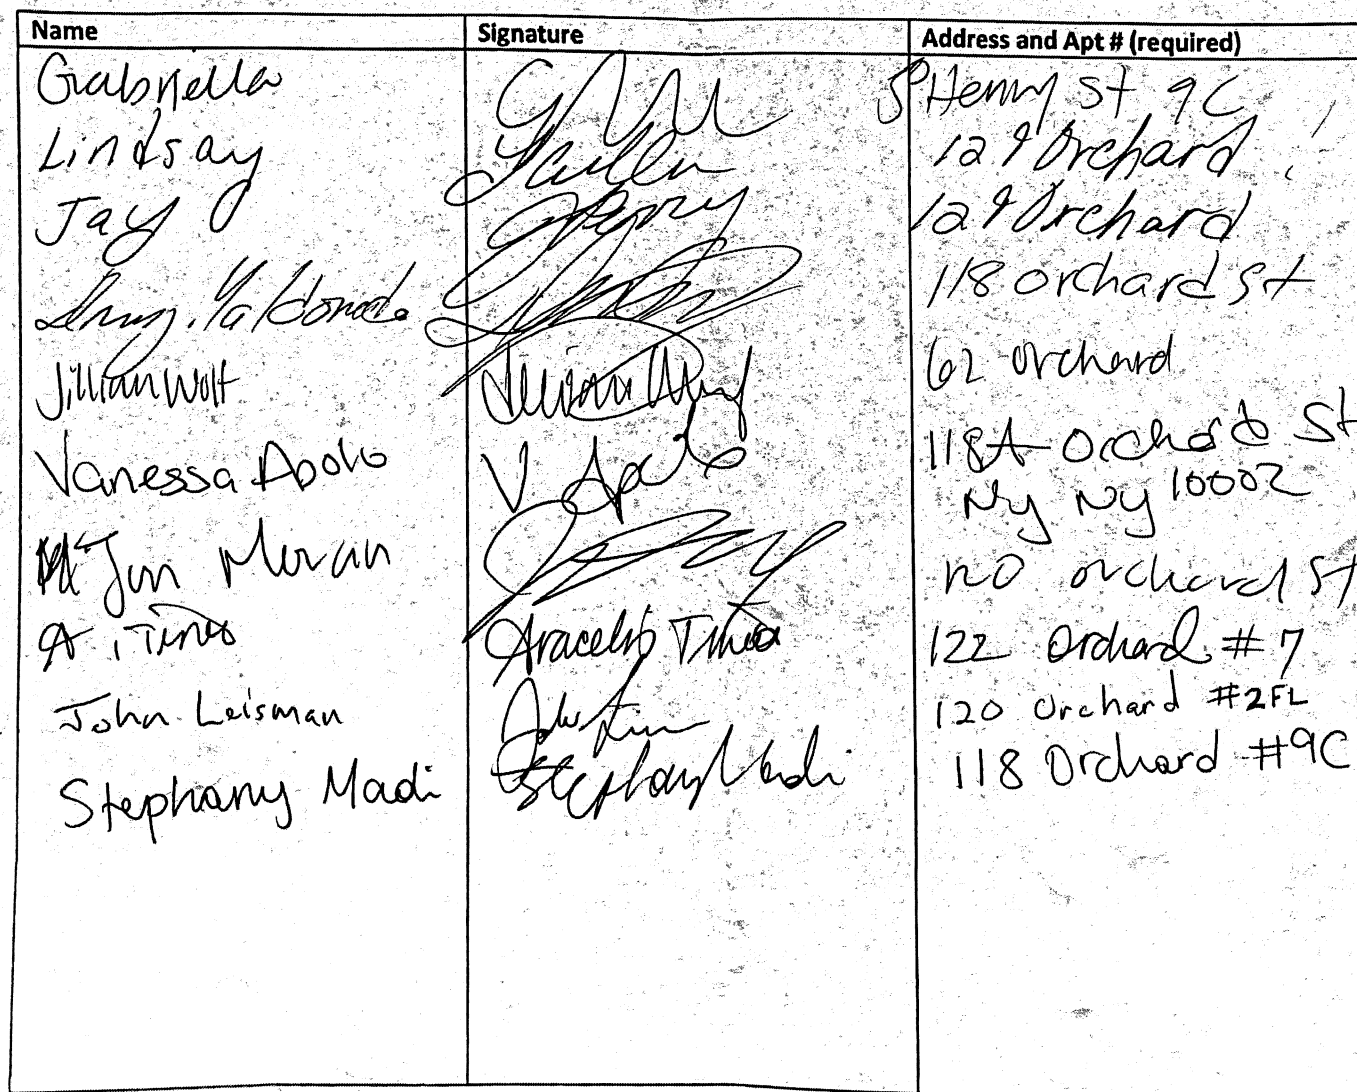 Name Signature Address and Apt # (required)
Gabriella Henry St 9C
Lindsay 129 Orchard
Jay 129 Orchard
118 orchard St
Jillian Wolf 62 orchard
Vanessa Apolo V. Apolo 118A Orchard St
Ny Ny 10002
Jon Moran 120 orchard St
A. Tineo Aracelis Tineo 122 Orchard #7
John Leisman 120 Orchard #2FL
Stephany Madi Stephany Madi 118 Orchard #9C